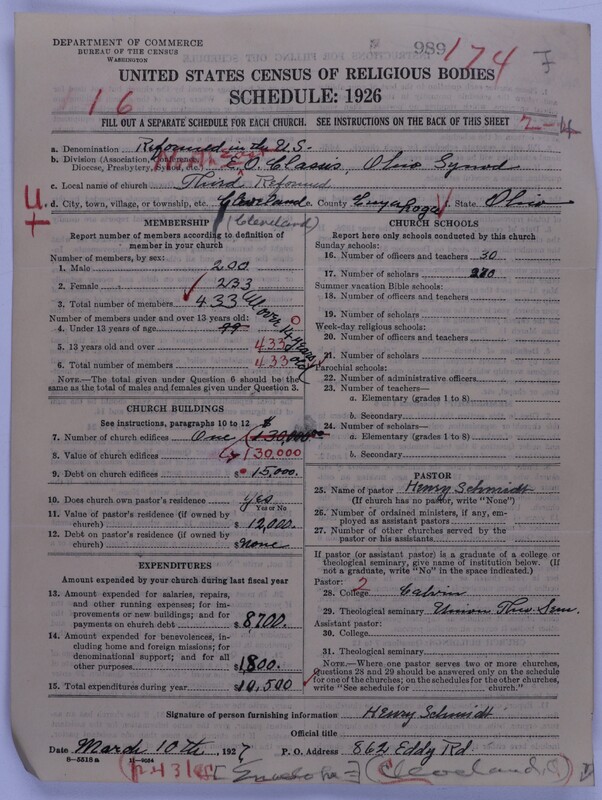 DEPARTMENT OF COMMERCE
BUREAU OF THE CENSUS
WASHINGTON
989 174
UNITED STATES CENSUS OF RELIGIOUS BODIES
16
SCHEDULE: 1926
FILL OUT A SEPARATE SCHEDULE FOR EACH CHURCH. SEE INSTRUCTIONS ON THE BACK OF THIS SHEET
2-4
a. Denomination Reformed in the U.S.
b. Division (Association, Conference, Diocese, Presbytery, Synod, etc.) E.O. Classis, Ohio Synod
c. Local name of church Third Reformed
d. City, town, village, or township, etc. Cleveland e. County Cuyahoga f. State Ohio
(Cleveland)
MEMBERSHIP
Report number of members according to definition of
member in your church
Number of members, by sex:
1. Male 200
2. Female 233
3. Total number of members 433
All over 14 years old
Number of members under and over 13 years old:
4. Under 13 years of age 0
5. 13 years old and over 433
6. Total number of members 433
NOTE.—The total given under Question 6 should be the
same as the total of males and females given under Question 3.
CHURCH BUILDINGS
See instructions, paragraphs 10 to 12
7. Number of church edifices One $130,000.00
8. Value of church edifices 130,000
9. Debt on church edifices $15,000.
10. Does church own pastor's residence yes
Yes or No
11. Value of pastor's residence (if owned by
church) $12,000.
12. Debt on pastor's residence (if owned by
church) $none
EXPENDITURES
Amount expended by your church during last fiscal year
13. Amount expended for salaries, repairs,
and other running expenses; for im-
provements or new buildings; and for
payments on church debt $8700.
14. Amount expended for benevolences, in-
cluding home and foreign missions; for
denominational support; and for all
other purposes $1800.
15. Total expenditures during year $10,500
CHURCH SCHOOLS
Report here only schools conducted by this church
Sunday schools:
16. Number of officers and teachers 30
17. Number of scholars
Summer vacation Bible schools:
18. Number of officers and teachers
19. Number of scholars
Week-day religious schools:
20. Number of officers and teachers
21. Number of scholars
Parochial schools:
22. Number of administrative officers
23. Number of teachers—
a. Elementary (grades 1 to 8)
b. Secondary
24. Number of scholars—
a. Elementary (grades 1 to 8)
b. Secondary
PASTOR
25. Name of pastor Henry Schmidt
(If church has no pastor, write "None")
26. Number of ordained ministers, if any, em-
ployed as assistant pastors
27. Number of other churches served by the
pastor or his assistants
If pastor (or assistant pastor) is a graduate of a college or
theological seminary, give name of institution below. (If
not a graduate, write "No" in the space indicated.)
Pastor: 2
28. College Calvin
29. Theological seminary Union Theo Sem.
Assistant pastor:
30. College
31. Theological seminary
NOTE.—Where one pastor serves two or more churches,
Questions 28 and 29 should be answered only on the schedule
for one of the churches; on the schedules for the other churches,
write "See schedule for church."
Signature of person furnishing information Henry Schmidt
Official title
Date March 10th, 1927 P. O. Address 862 Eddy Rd
8-5518a 11-9054
[Envelope=] (Cleveland, O.)